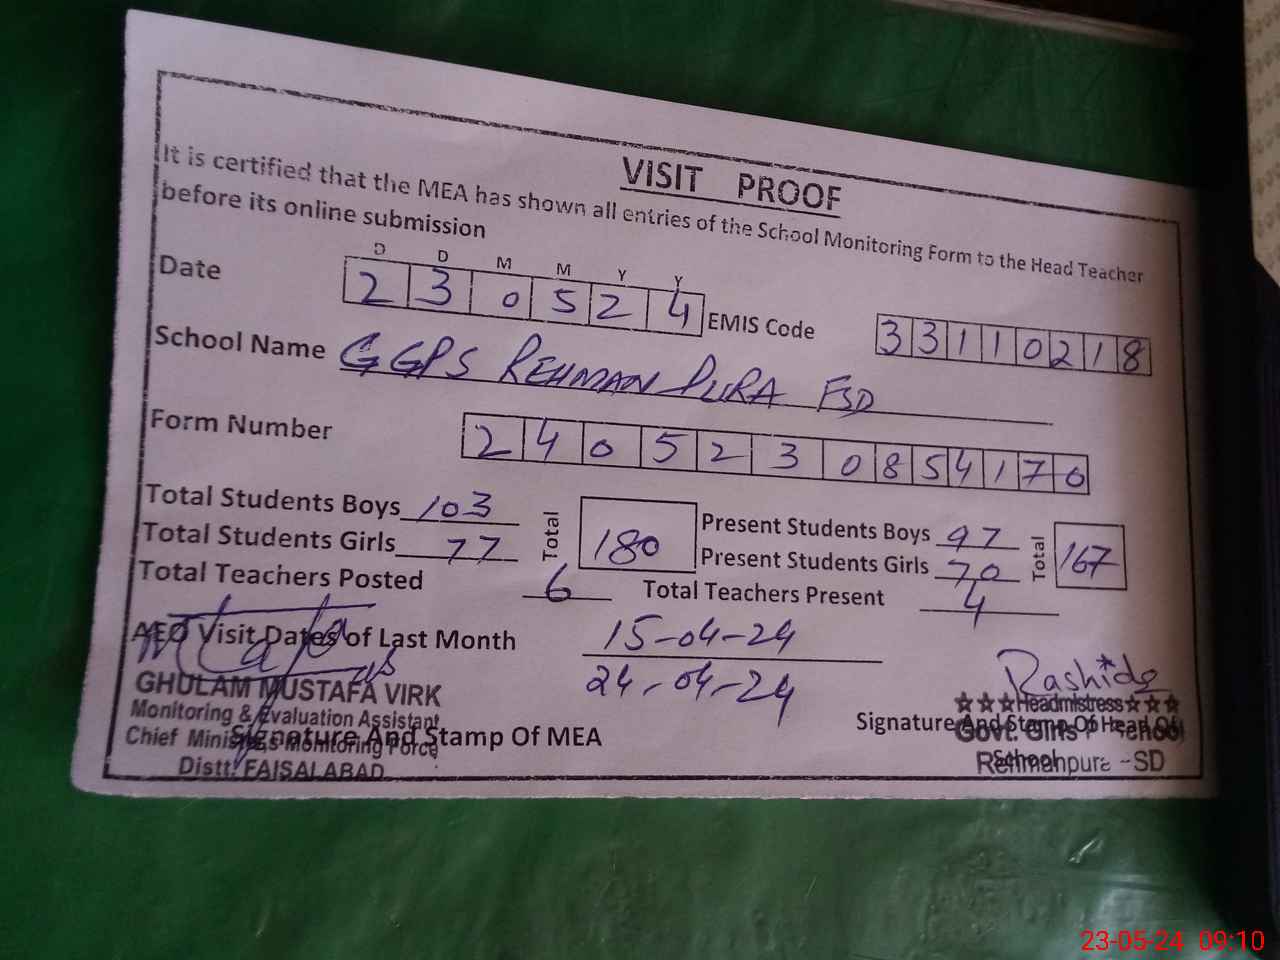 VISIT PROOF
It is certified that the MEA has shown all entries of the School Monitoring Form to the Head Teacher
before its online submission
D D M M Y Y
Date 2 3 0 5 2 4 EMIS Code 3 3 1 1 0 2 1 8
School Name GGPS REHMAN PURA FSD
Form Number 2 4 0 5 2 3 0 8 5 4 1 7 0
Total Students Boys 103 Total 180 Present Students Boys 97 Total 167
Total Students Girls 77 Present Students Girls 70
Total Teachers Posted 6 Total Teachers Present 4
AEO Visit Dates of Last Month 15-04-24
24-04-24
Rashida
GHULAM MUSTAFA VIRK
Monitoring & Evaluation Assistant
Chief Minister's Monitoring Force
Distt. FAISALABAD
Signature And Stamp Of MEA
☆☆☆Headmistress☆☆☆
Govt. Girls P School
Rehmanpura -SD
Signature And Stamp Of Head Of
School
23-05-24 09:10